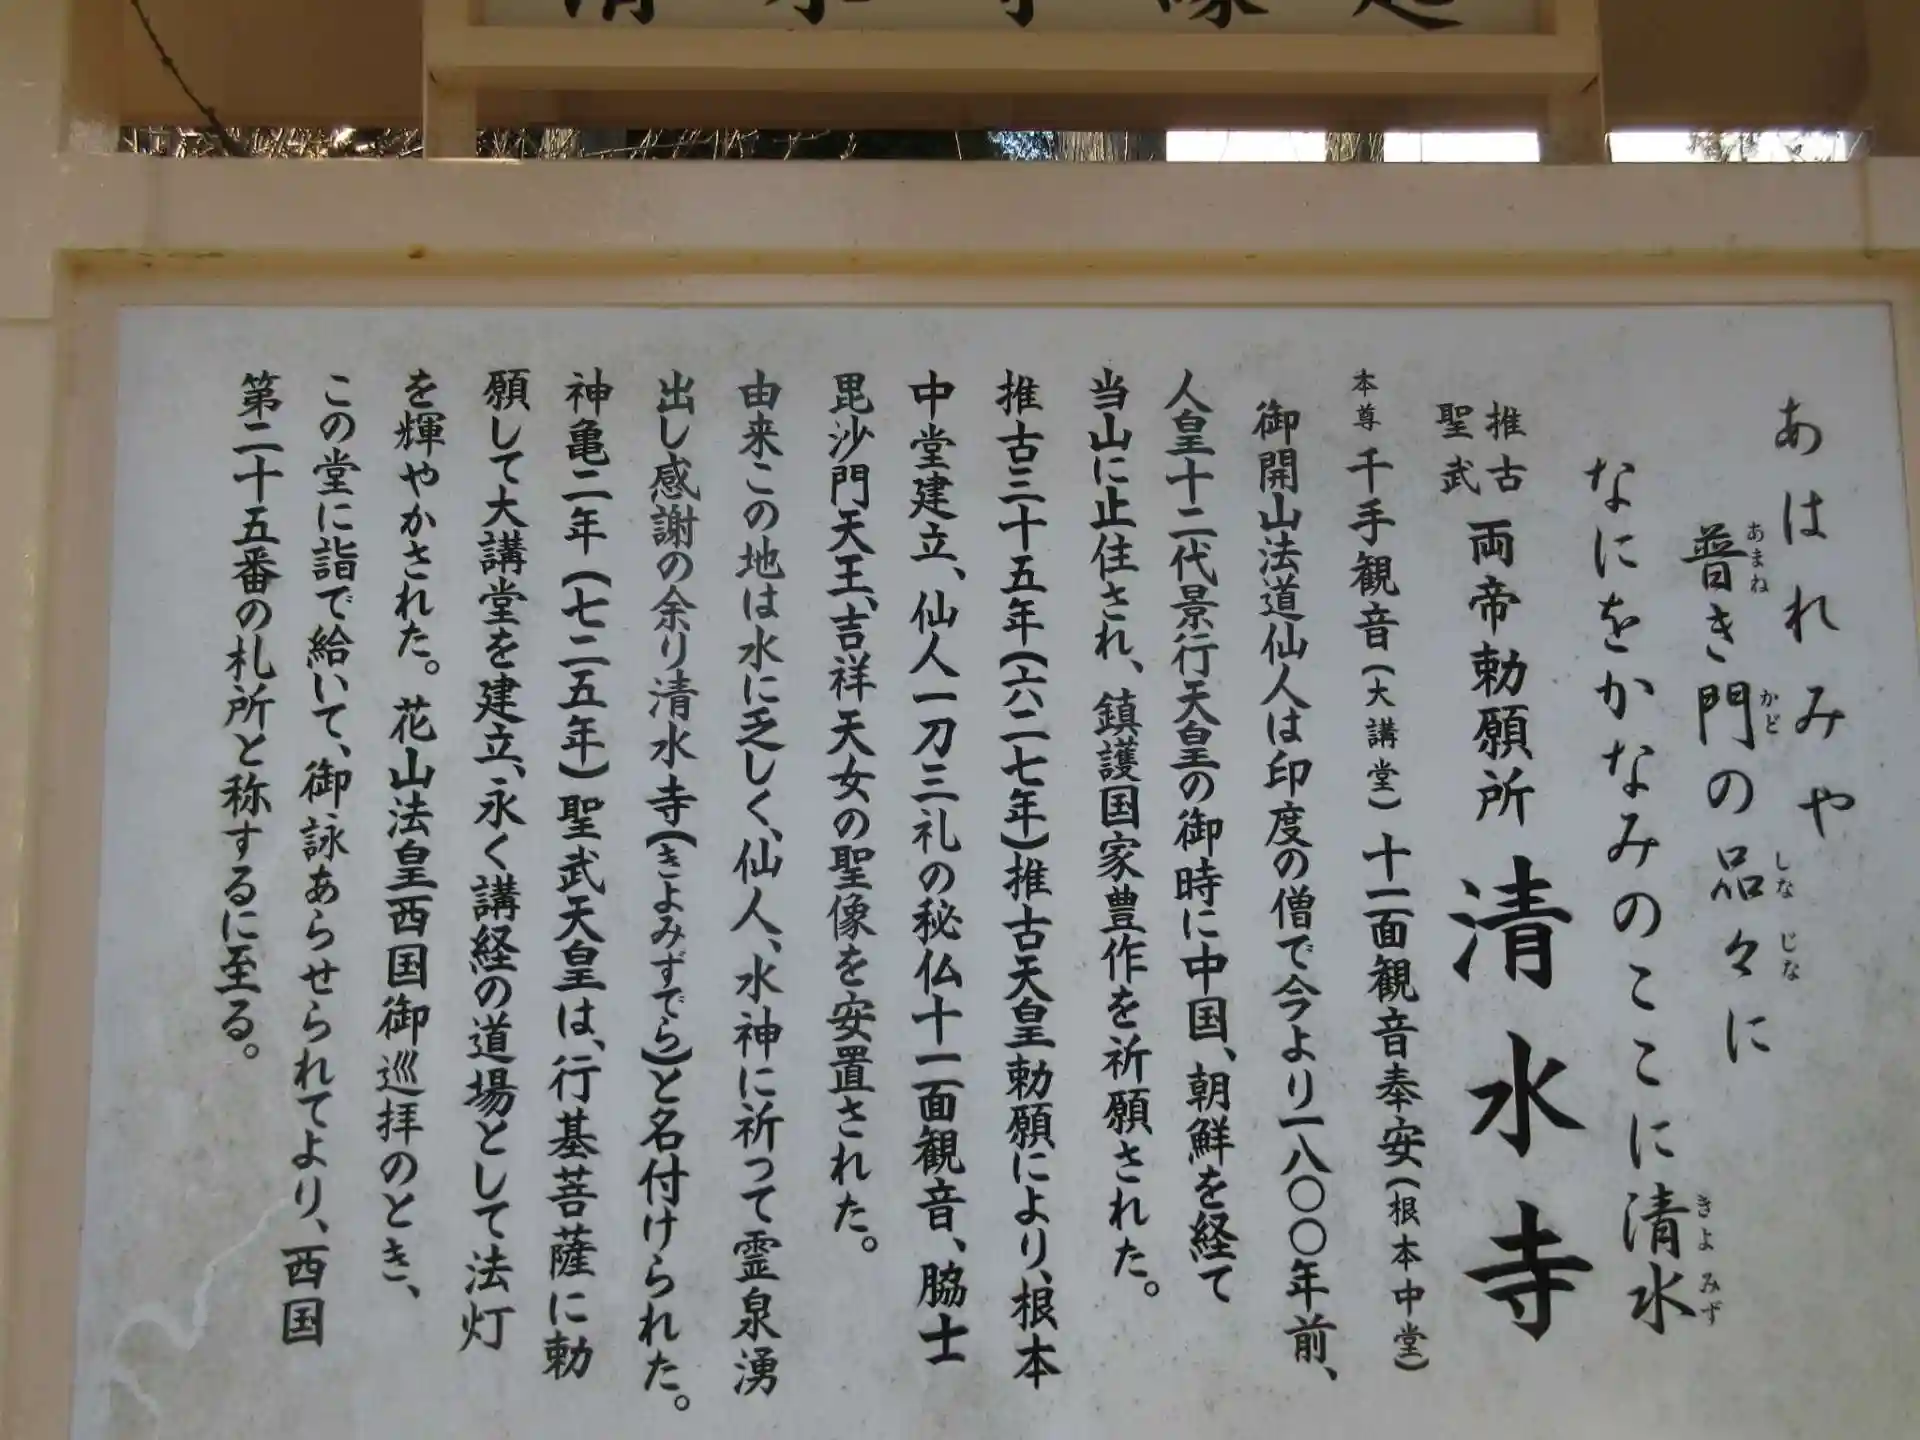 清水寺縁起
あはれみや
普き門の品々に
あまね かど しなじな
なにをかなみのここに清水
きよみず
推古
聖武
両帝勅願所 清水寺
本尊 千手観音(大講堂)十一面観音奉安(根本中堂)
御開山法道仙人は印度の僧で今より一八〇〇年前、
人皇十二代景行天皇の御時に中国、朝鮮を経て
当山に止住され、鎮護国家豊作を祈願された。
推古三十五年(六二七年)推古天皇勅願により、根本
中堂建立、仙人一刀三礼の秘仏十一面観音、脇士
毘沙門天王、吉祥天女の聖像を安置された。
由来この地は水に乏しく、仙人、水神に祈って霊泉湧
出し感謝の余り清水寺(きよみずでら)と名付けられた。
神亀二年(七二五年)聖武天皇は、行基菩薩に勅
願して大講堂を建立、永く講経の道場として法灯
を輝やかされた。花山法皇西国御巡拝のとき、
この堂に詣で給いて、御詠あらせられてより、西国
第二十五番の札所と称するに至る。